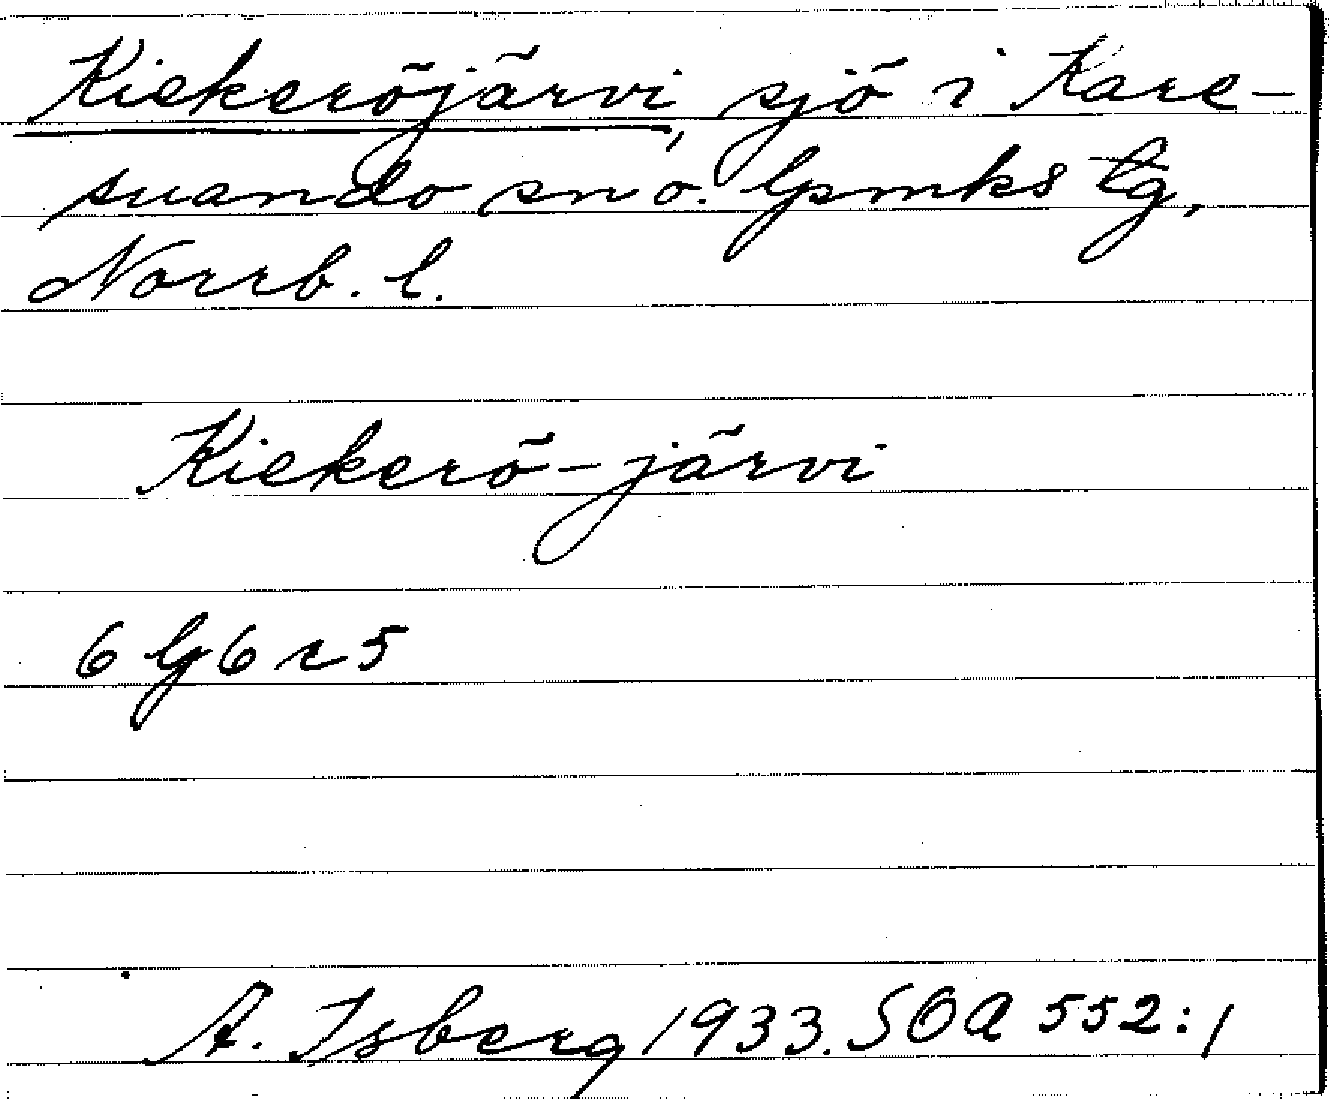 Kiekeröjärvi, sjö i Kare-
suando sn o. lpmks tg,
Norrb. l.
Kiekerö-järvi
6 lg 6 r 5
A. Isberg 1933. SOA 552:1